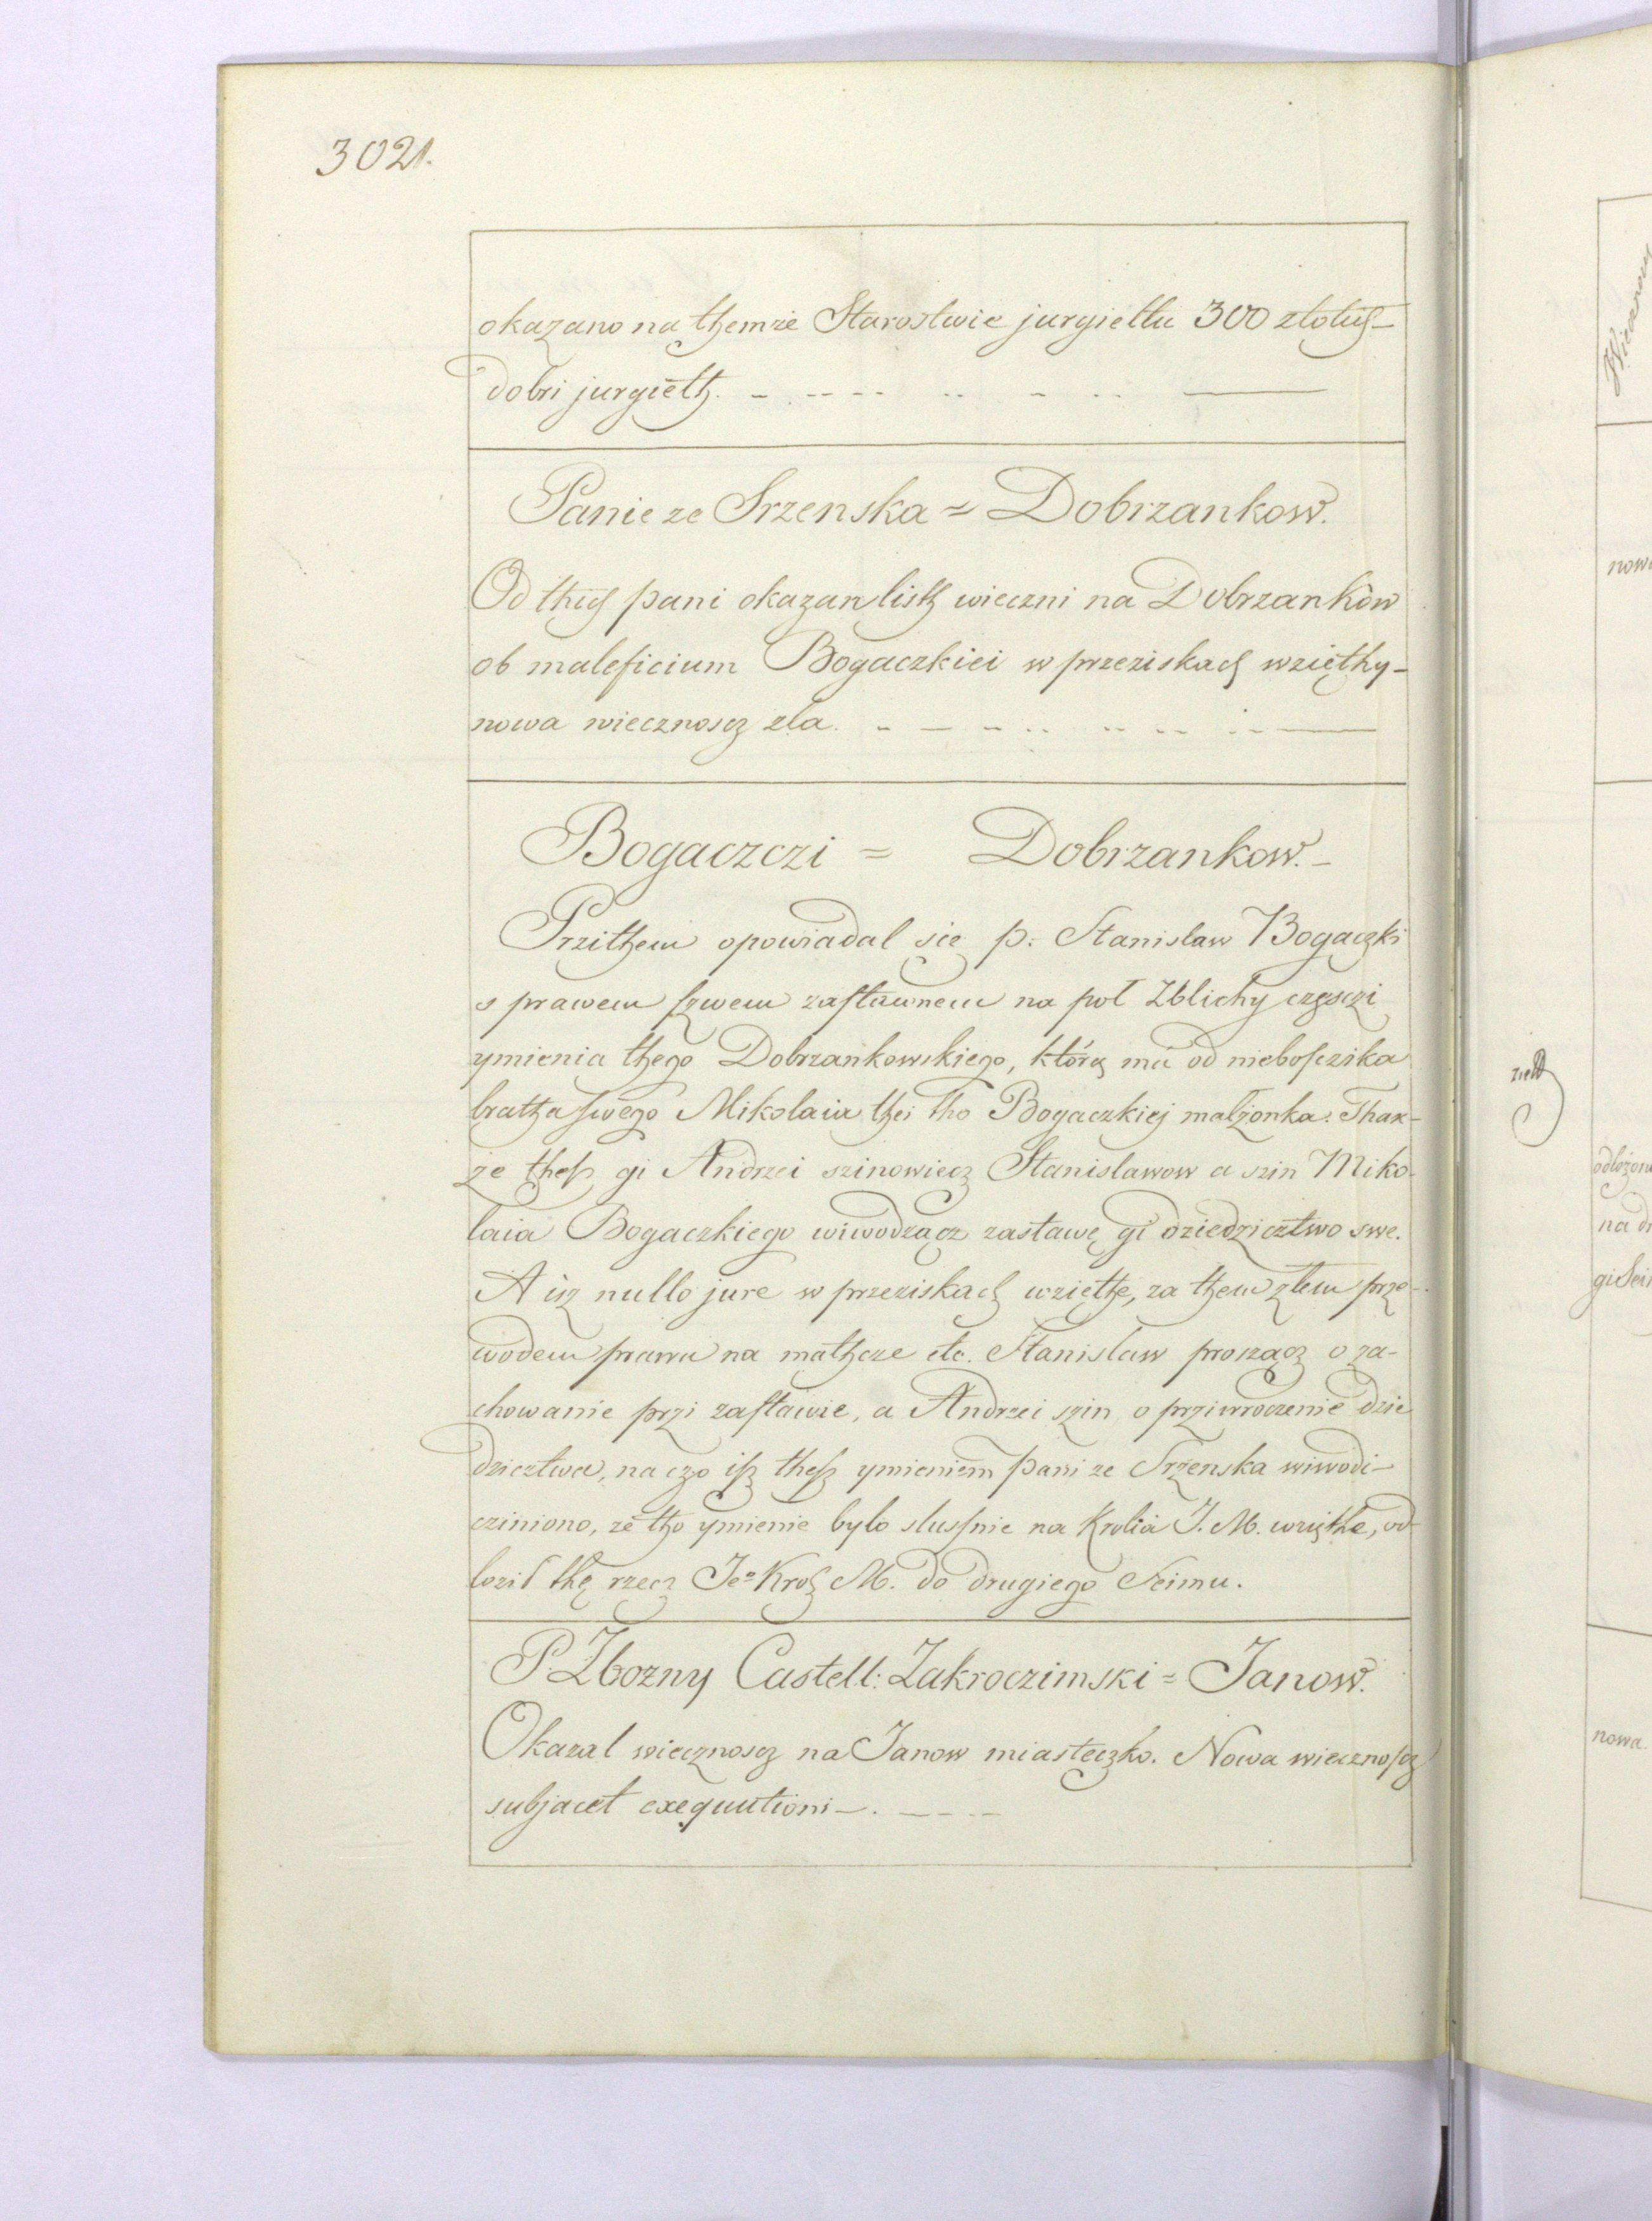 3021.
okazano na themze Starostwie jurgieltu 300 zlotich
dobri jurgielth.
Panie ze Srzenska = Dobrzankow.
Od thich pani okazan listh wieczni na Dobrzanków
ob maleficium Bogaczkiei w przeziskach wziethy
nowa wiecznoscz zla.
Bogaczczi = Dobrzankow.
Przithem opowiadal się p. Stanislaw Bogaczki
s prawem szwem zastawnem na pol Zblichy częsczi
ymienia thego Dobrzankowskiego, którą ma od nieboszczika
bratha swego Mikolaia thei tho Bogaczkiej malzonka. Thak-
ze thesz gi Andrzei szinowiecz Stanislawow a szin Miko-
laia Bogaczkiego wiwodzącz zastawę gi dziedzicztwo swe.
A isz nullo jure w przeziskach wziethe, za them zlem prze-
wodem prawa na mathcze etc. Stanislaw proszącz o za-
chowanie przi zastawie, a Andrzei szin o przivroczenie dzie
dzicztwa, na czo isz thesz ymieniem pani ze Srzenska wiwodi-
cziniono, ze tho ymienie bylo slusznie na Krolia J. M. wzięthe, od-
lozil thę rzecz Jeo Kroł M. do drugiego Seimu.
P. Zbozny Castell: Zakroczimski = Janow.
Okazal wiecznoscz na Janow miasteczko. Nowa wiecznoscz
subjacet exequutioni.
Wieczność
nowa
odlożono
na dr
gi Sei
nowa